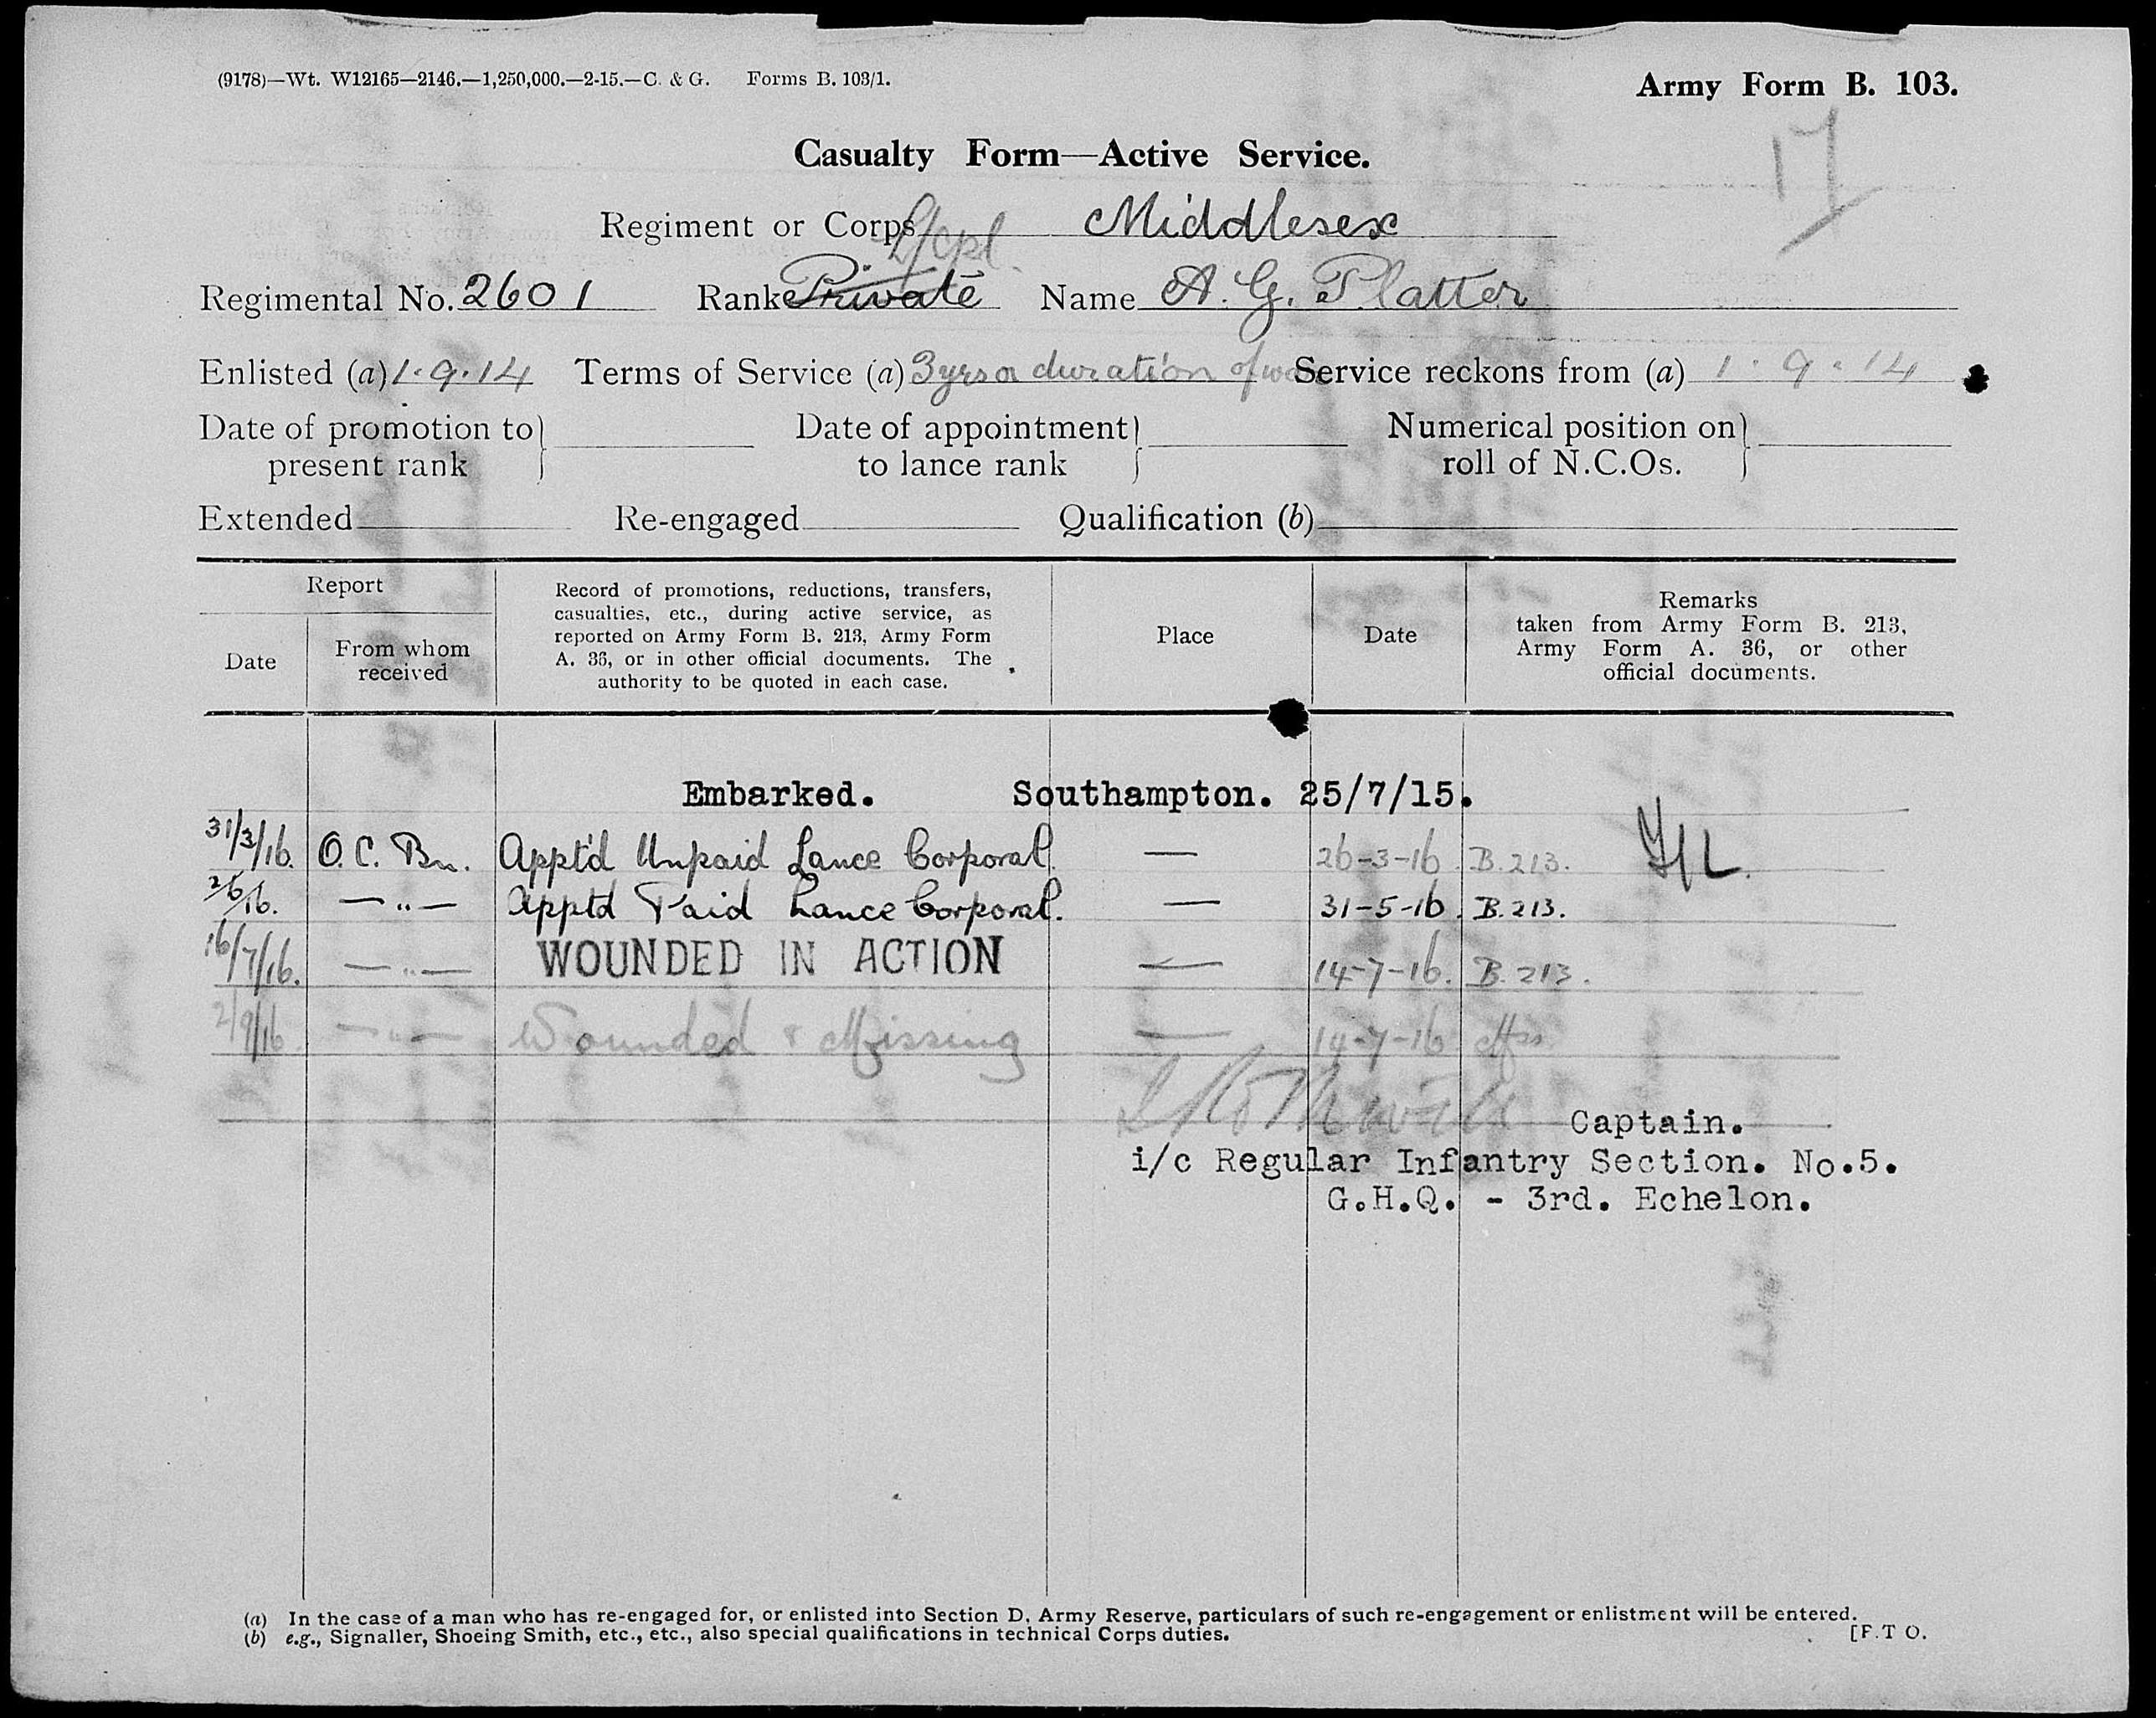 (9178)—Wt. W12165—2146.—1,250,000.—2-15.—C. & G. Forms B. 103/1.
Army Form B. 103.
17
Casualty Form—Active Service.
Regiment or Corps Middlesex
L/Cpl.
Regimental No. 2601 Rank Private Name A. G. Platter
Enlisted (a) 1.9.14 Terms of Service (a) 3 yrs or duration of war Service reckons from (a) 1.9.14
Date of promotion to } Date of appointment } Numerical position on }
present rank to lance rank roll of N.C.Os.
Extended Re-engaged Qualification (b)
Report
Date
From whom
received
Record of promotions, reductions, transfers,
casualties, etc., during active service, as
reported on Army Form B. 213, Army Form
A. 36, or in other official documents. The
authority to be quoted in each case.
Place
Date
Remarks
taken from Army Form B. 213,
Army Form A. 36, or other
official documents.
Embarked. Southampton. 25/7/15.
31/3/16. O.C. Bn. Appt'd Unpaid Lance Corporal — 26-3-16 B.213.
2/6/16. —"— Apptd Paid Lance Corporal. — 31-5-16. B.213.
16/7/16. —"— WOUNDED IN ACTION — 14-7-16. B.213.
2/9/16 —"— Wounded & Missing — 14-7-16
Captain.
i/c Regular Infantry Section. No.5.
G.H.Q. - 3rd. Echelon.
(a) In the case of a man who has re-engaged for, or enlisted into Section D, Army Reserve, particulars of such re-engagement or enlistment will be entered.
(b) e.g., Signaller, Shoeing Smith, etc., etc., also special qualifications in technical Corps duties.
[P.T O.